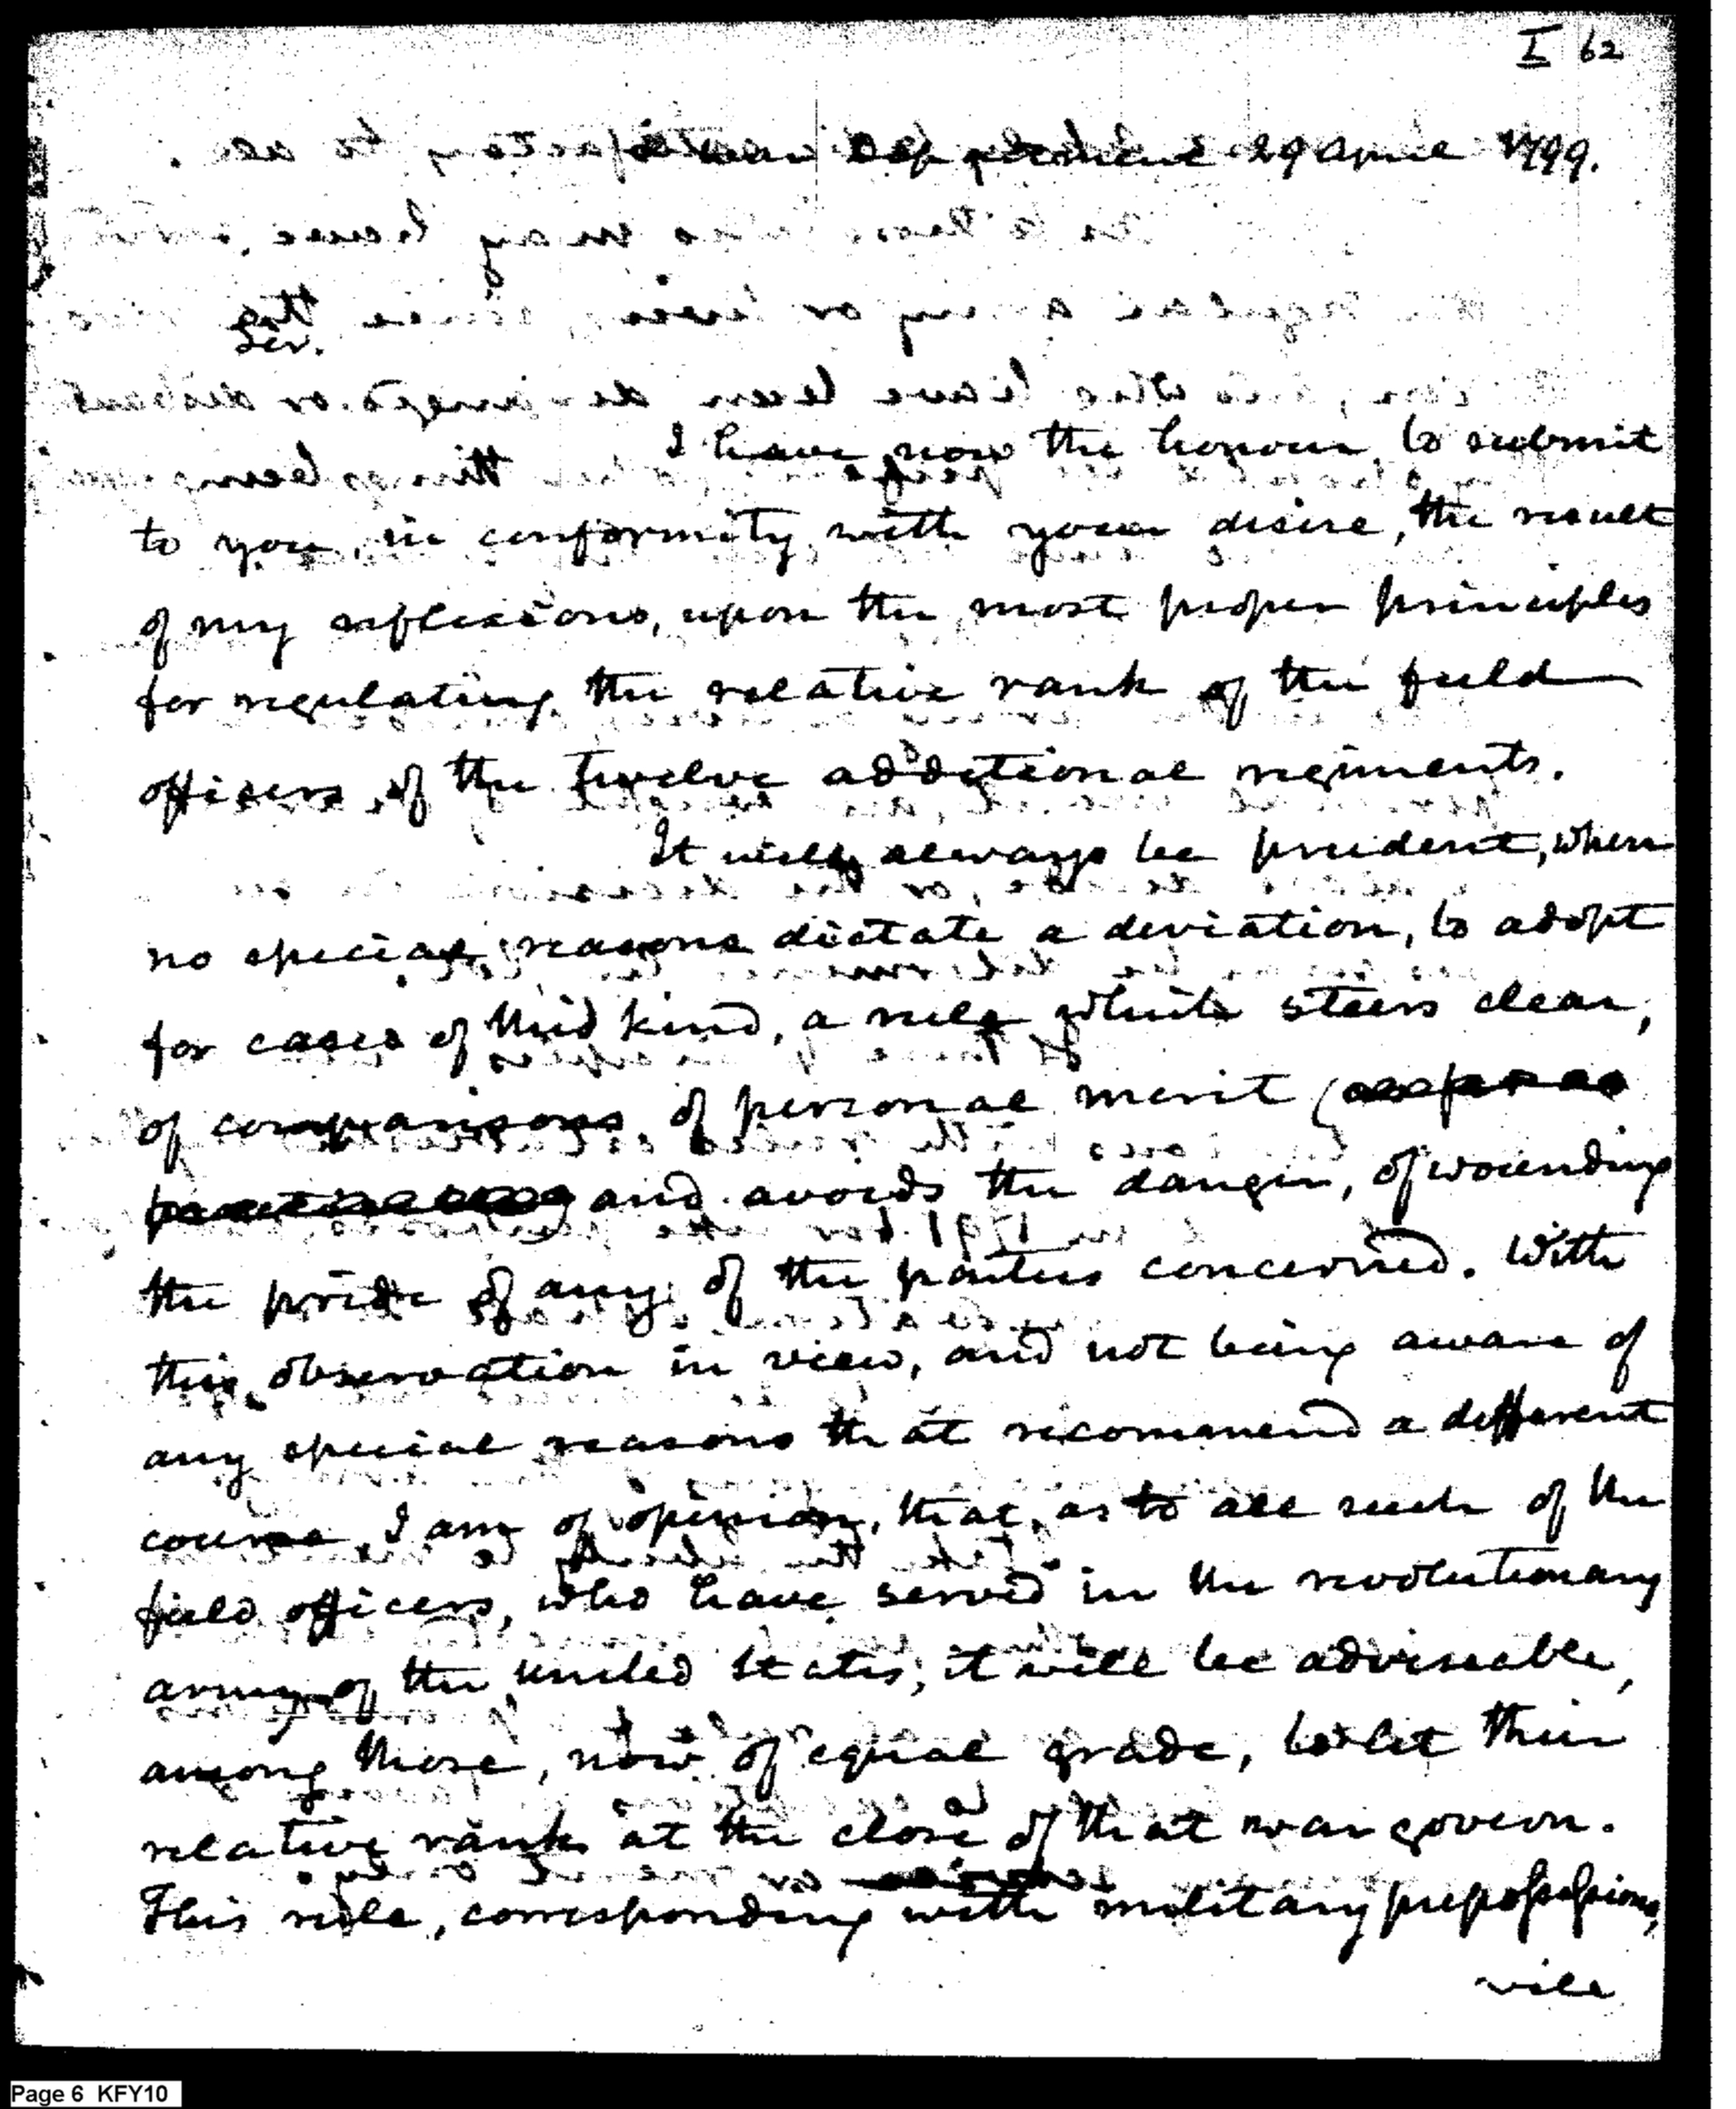 I 62
War Department 29 April 1799.
Sir.
I have now the honour, to submit
to you, in conformity with your desire, the result
of my reflexions, upon the most proper principles
for regulating the relative rank of the field
officers of the twelve additional regiments.
It will always be prudent, when
no special reasons dictate a deviation, to adopt
for cases of this kind, a rule which steers clear,
of comparisons of personal merit (as far as
practicable) and avoids the danger, of wounding
the pride of any of the parties concerned. With
this observation in view, and not being aware of
any special reasons that recommend a different
course, I am of opinion, that, as to all such of the
field officers, who have served in the revolutionary
army of the united States; it will be adviseable,
among those, now of equal grade, to let their
relative rank at the close of that war govern.
This rule, corresponding with military prepossessions,
will
Page 6 KFY10